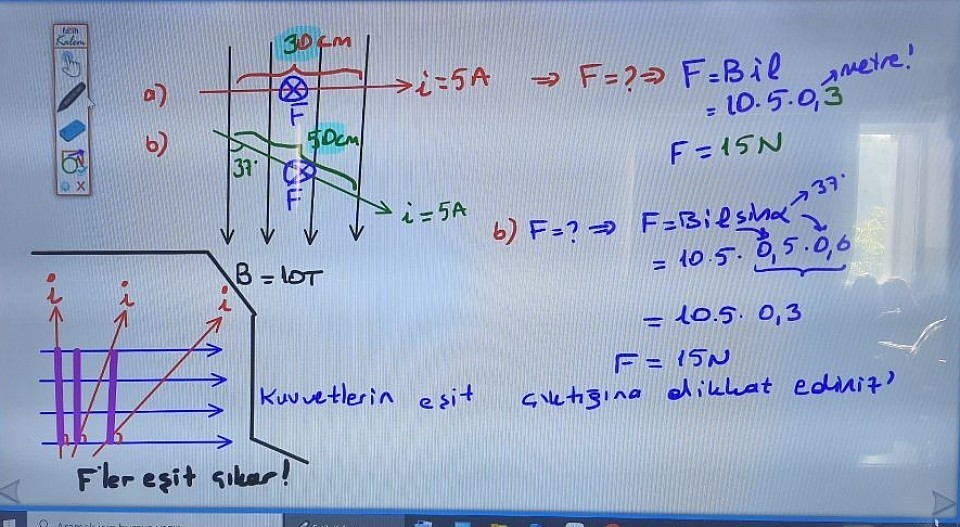 Kalem
30cm
a)
i=5A ⇒ F=?⇒ F=Bil
metre!
= 10.5.0,3
F
F=15N
b)
50cm
37°
F
i=5A
b) F=? ⇒ F=Bilsinα
37°
= 10.5. 0,5.0,6
B=10T
= 10.5. 0,3
F=15N
i i i
Kuvvetlerin eşit çıktığına dikkat ediniz'
F'ler eşit çıkar!